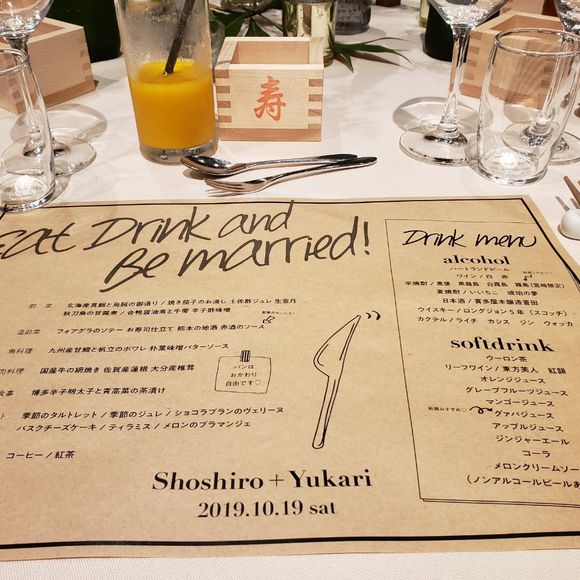 寿
Eat Drink and
Be married!
前菜 玄海産真鯛と烏賊の御造り / 焼き茄子のお浸し 土佐酢ジュレ 生雲丹
秋刀魚の甘露煮 / 合鴨醤油煮と牛蒡 辛子酢味噌
温前菜 フォアグラのソテー お寿司仕立て 熊本の地酒 赤酒のソース
魚料理 九州産甘鯛と帆立のポワレ 朴葉味噌バターソース
肉料理 国産牛の網焼き 佐賀産蓮根 大分産椎茸
食事 博多辛子明太子と青高菜の茶漬け
季節のタルトレット / 季節のジュレ / ショコラブランのヴェリーヌ
バスクチーズケーキ / ティラミス / メロンのブラマンジェ
コーヒー / 紅茶
パンは
おかわり
自由です♡
Shoshiro + Yukari
2019.10.19 sat
Drink menu
alcohol
ハートランドビール
ワイン / 白 赤
芋焼酎 / 黒霧島 白霧島 霧島(宮崎限定)
麦焼酎 / いいちこ 琥珀の夢
日本酒 / 喜多屋本醸造蒼田
ウイスキー / ロングジョン5年(スコッチ)
カクテル / ライチ カシス ジン ウォッカ
softdrink
ウーロン茶
リーフワイン / 東方美人 紅韻
オレンジジュース
グレープフルーツジュース
マンゴージュース
新婦おすすめ♡
グァバジュース
アップルジュース
ジンジャーエール
コーラ
メロンクリームソー
(ノンアルコールビールあ